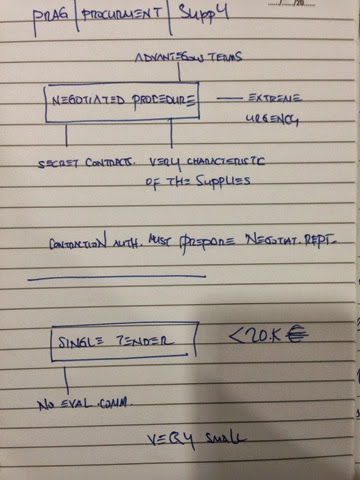 PRAG | PROCURMENT | SUPPLY
/20
ADVANTEGOUS TERMS
NEGOTIATED PROCEDURE
EXTREME
URGENCY
SECRET CONTRACTS. VERY CHARACTERISTIC
OF THE SUPPLIES
AUTH. MUST PREPARE NEGOTIAT. REPT.
SINGLE TENDER
<20.K €
NO EVAL. COMM.
VERY SMALL